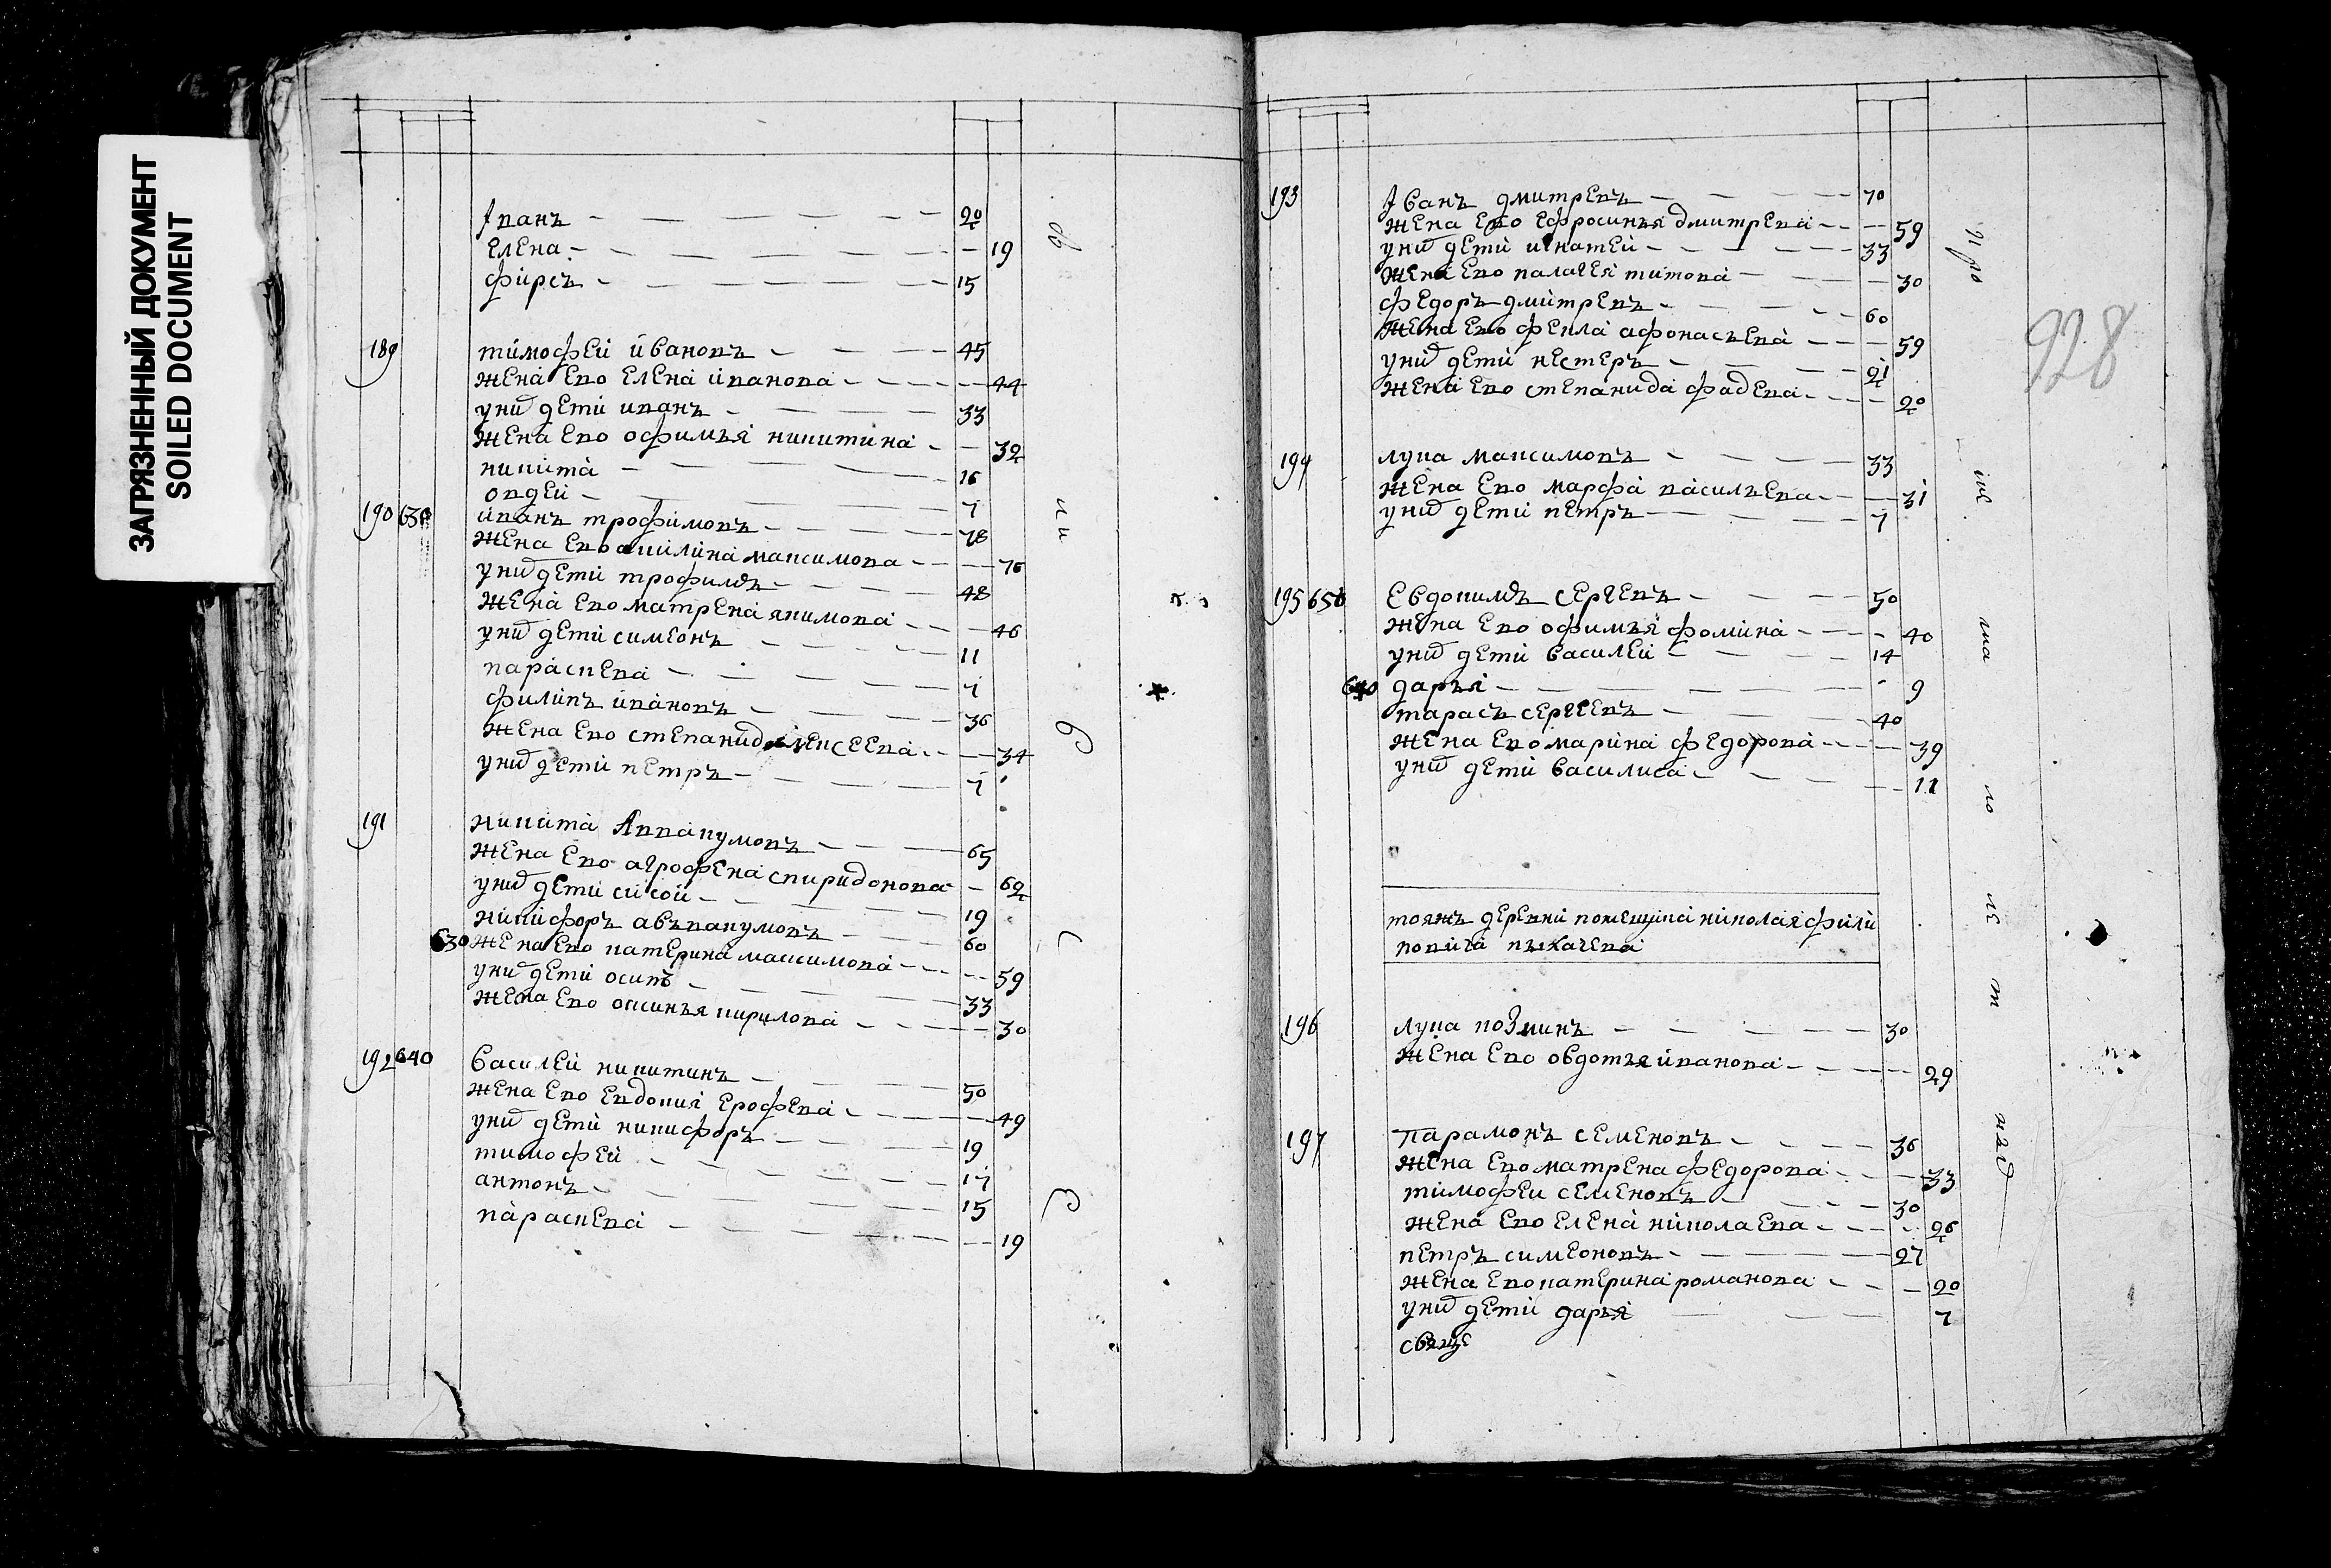 ЗАГРЯЗНЕННЫЙ ДОКУМЕНТ
SOILED DOCUMENT
Іванъ 20
Елена 19
фирсъ 15
189 тимофей ивановъ 45
жена ево елена иванова 44
у них дети иванъ 33
жена ево офимья никитина 32
никита 16
овдей 7
190 630 иванъ трофимовъ 78
жена ево акилина максимова 76
у них дети трофимъ 48
жена ево матрена якимова 46
у них дети симеонъ 11
параскева 7
филипъ ивановъ 36
жена ево степанида алексеева 34
у них дети петръ 7
191 никита Аввакумовъ 65
жена ево агрофена спиридонова 62
у них дети сисой 19
никифоръ авъвакумовъ 60
630 жена ево катерина максимова 59
у них дети осипъ 33
жена ево оксинья кирилова 30
192 640 василей никитинъ 50
жена ево евдокия ерофева 49
у них дети никифоръ 19
тимофей 17
антонъ 15
параскева 19
928
193 Іванъ дмитревъ 70
жена ево ефросинья дмитрева 59
у них дети игнатей 33
жена ево палагея титова 30
федоръ дмитревъ 60
жена ево фекла афонасьева 59
у них дети нестеръ 21
жена ево степанида фадева 20
194 лука максимовъ 33
жена ево марфа васильева 31
у них дети петръ 7
195 650 Евдокимъ сергевъ 50
жена ево офимья фомина 40
у них дети василей 14
640 дарья 9
тарасъ сергеевъ 40
жена ево марина федорова 39
у них дети василиса 11
тояжъ деревни помещика николая фили
повича
196 лука козминъ 30
жена ево овдотья иванова 29
197 парамонъ семеновъ 36
жена ево матрена федорова 33
тимофеи семеновъ 30
жена ево елена николаева 26
петръ симеоновъ 27
жена ево катерина романова 20
у них дети дарья 7